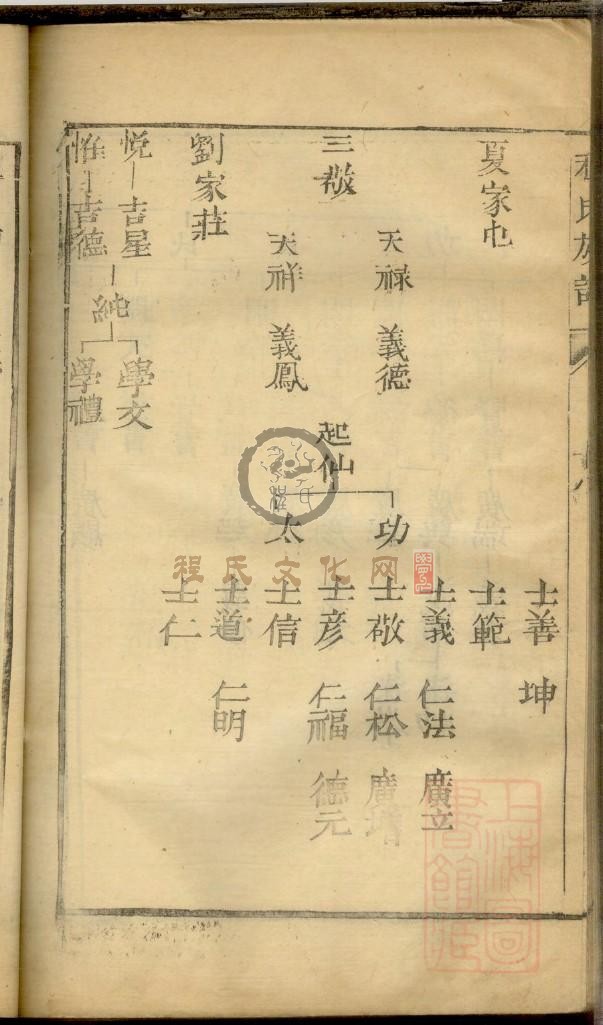 程氏族譜
夏家屯
士善 坤
士範
天禄 義德 功 士義 仁法 廣立
士敬 仁松 廣
三敬 起仙 士彦 仁福 德元
天祥 義鳳 太 士信
士道 仁明
劉家莊 士仁
悦 吉星 純 學文
惟 吉德 學禮
程氏文化网
上海圖書館藏